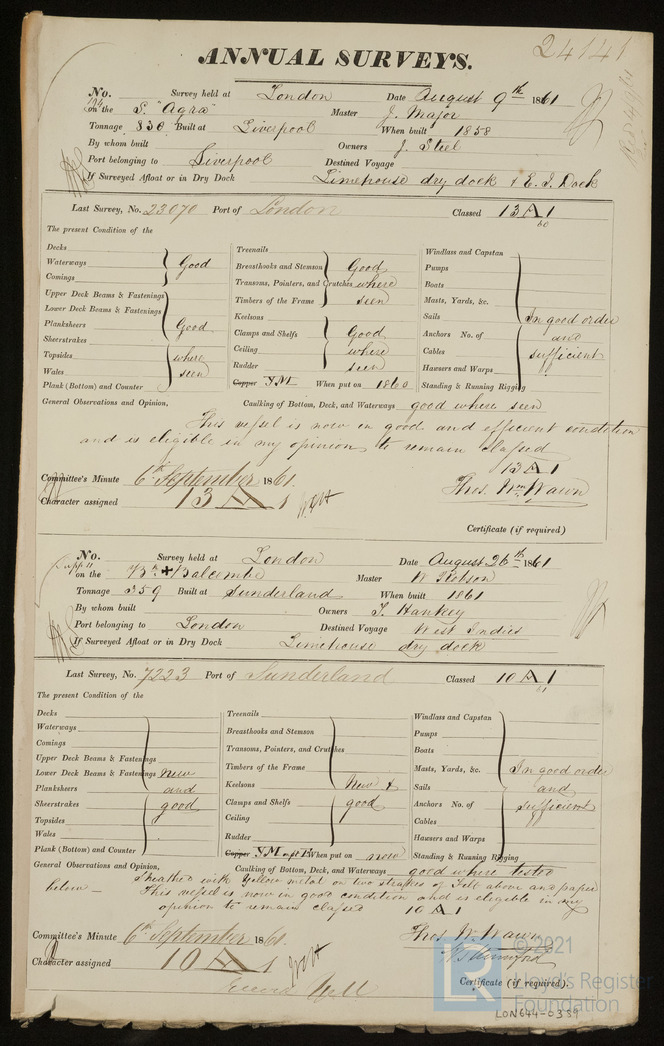 24141
ANNUAL SURVEYS.
No. Survey held at London Date August 9th 1861
on the S. "Agra" Master J. Major
Tonnage 830 Built at Liverpool When built 1858
By whom built Owners J. Steel
Port belonging to Liverpool Destined Voyage
If Surveyed Afloat or in Dry Dock Limehouse dry dock & E. I. Dock
Last Survey, No. 23070 Port of London Classed 13 A 1
60
The present Condition of the
Decks
Waterways Good
Comings
Upper Deck Beams & Fastenings
Lower Deck Beams & Fastenings
Planksheers Good
Sheerstrakes
Topsides where
Wales seen
Plank (Bottom) and Counter
Treenails
Breasthooks and Stemson Good
Transoms, Pointers, and Crutches where
Timbers of the Frame seen
Keelsons
Clamps and Shelfs Good
Ceiling where
Rudder seen
Copper YM When put on 1860
Windlass and Capstan
Pumps
Boats
Masts, Yards, &c.
Sails In good order
Anchors No. of and
Cables sufficient
Hawsers and Warps
Standing & Running Rigging
General Observations and Opinion, Caulking of Bottom, Deck, and Waterways good where seen
This vessel is now in good and efficient condition
and is eligible in my opinion to remain classed
13 A 1
Committee's Minute 6th September 1861.
Character assigned 13 A 1
Thos. Wm Wawn
Certificate (if required)
No. Survey held at London Date August 26th 1861
on the Bk Balcombe Master W Hobson
Tonnage 359 Built at Sunderland When built 1861
By whom built Owners T. Hankey
Port belonging to London Destined Voyage West Indies
If Surveyed Afloat or in Dry Dock Limehouse dry dock
Last Survey, No. 7223 Port of Sunderland Classed 10 A 1
61
The present Condition of the
Decks
Waterways
Comings
Upper Deck Beams & Fastenings
Lower Deck Beams & Fastenings New
Planksheers and
Sheerstrakes good
Topsides
Wales
Plank (Bottom) and Counter
Treenails
Breasthooks and Stemson
Transoms, Pointers, and Crutches
Timbers of the Frame
Keelsons New &
Clamps and Shelfs good
Ceiling
Rudder
Copper YM When put on now
Windlass and Capstan
Pumps
Boats
Masts, Yards, &c. In good order
Sails and
Anchors No. of sufficient
Cables
Hawsers and Warps
Standing & Running Rigging
General Observations and Opinion, Caulking of Bottom, Deck, and Waterways good where tested
Sheathed with Yellow metal on two strakes of Felt above and paper
below –
This vessel is now in good condition and is eligible in my
opinion to remain classed 10 A 1
Committee's Minute 6th September 1861.
Character assigned 10 A 1
Thos. W. Wawn
Certificate (if required).
© 2021
Lloyd's Register
Foundation
LR
LON644-0339